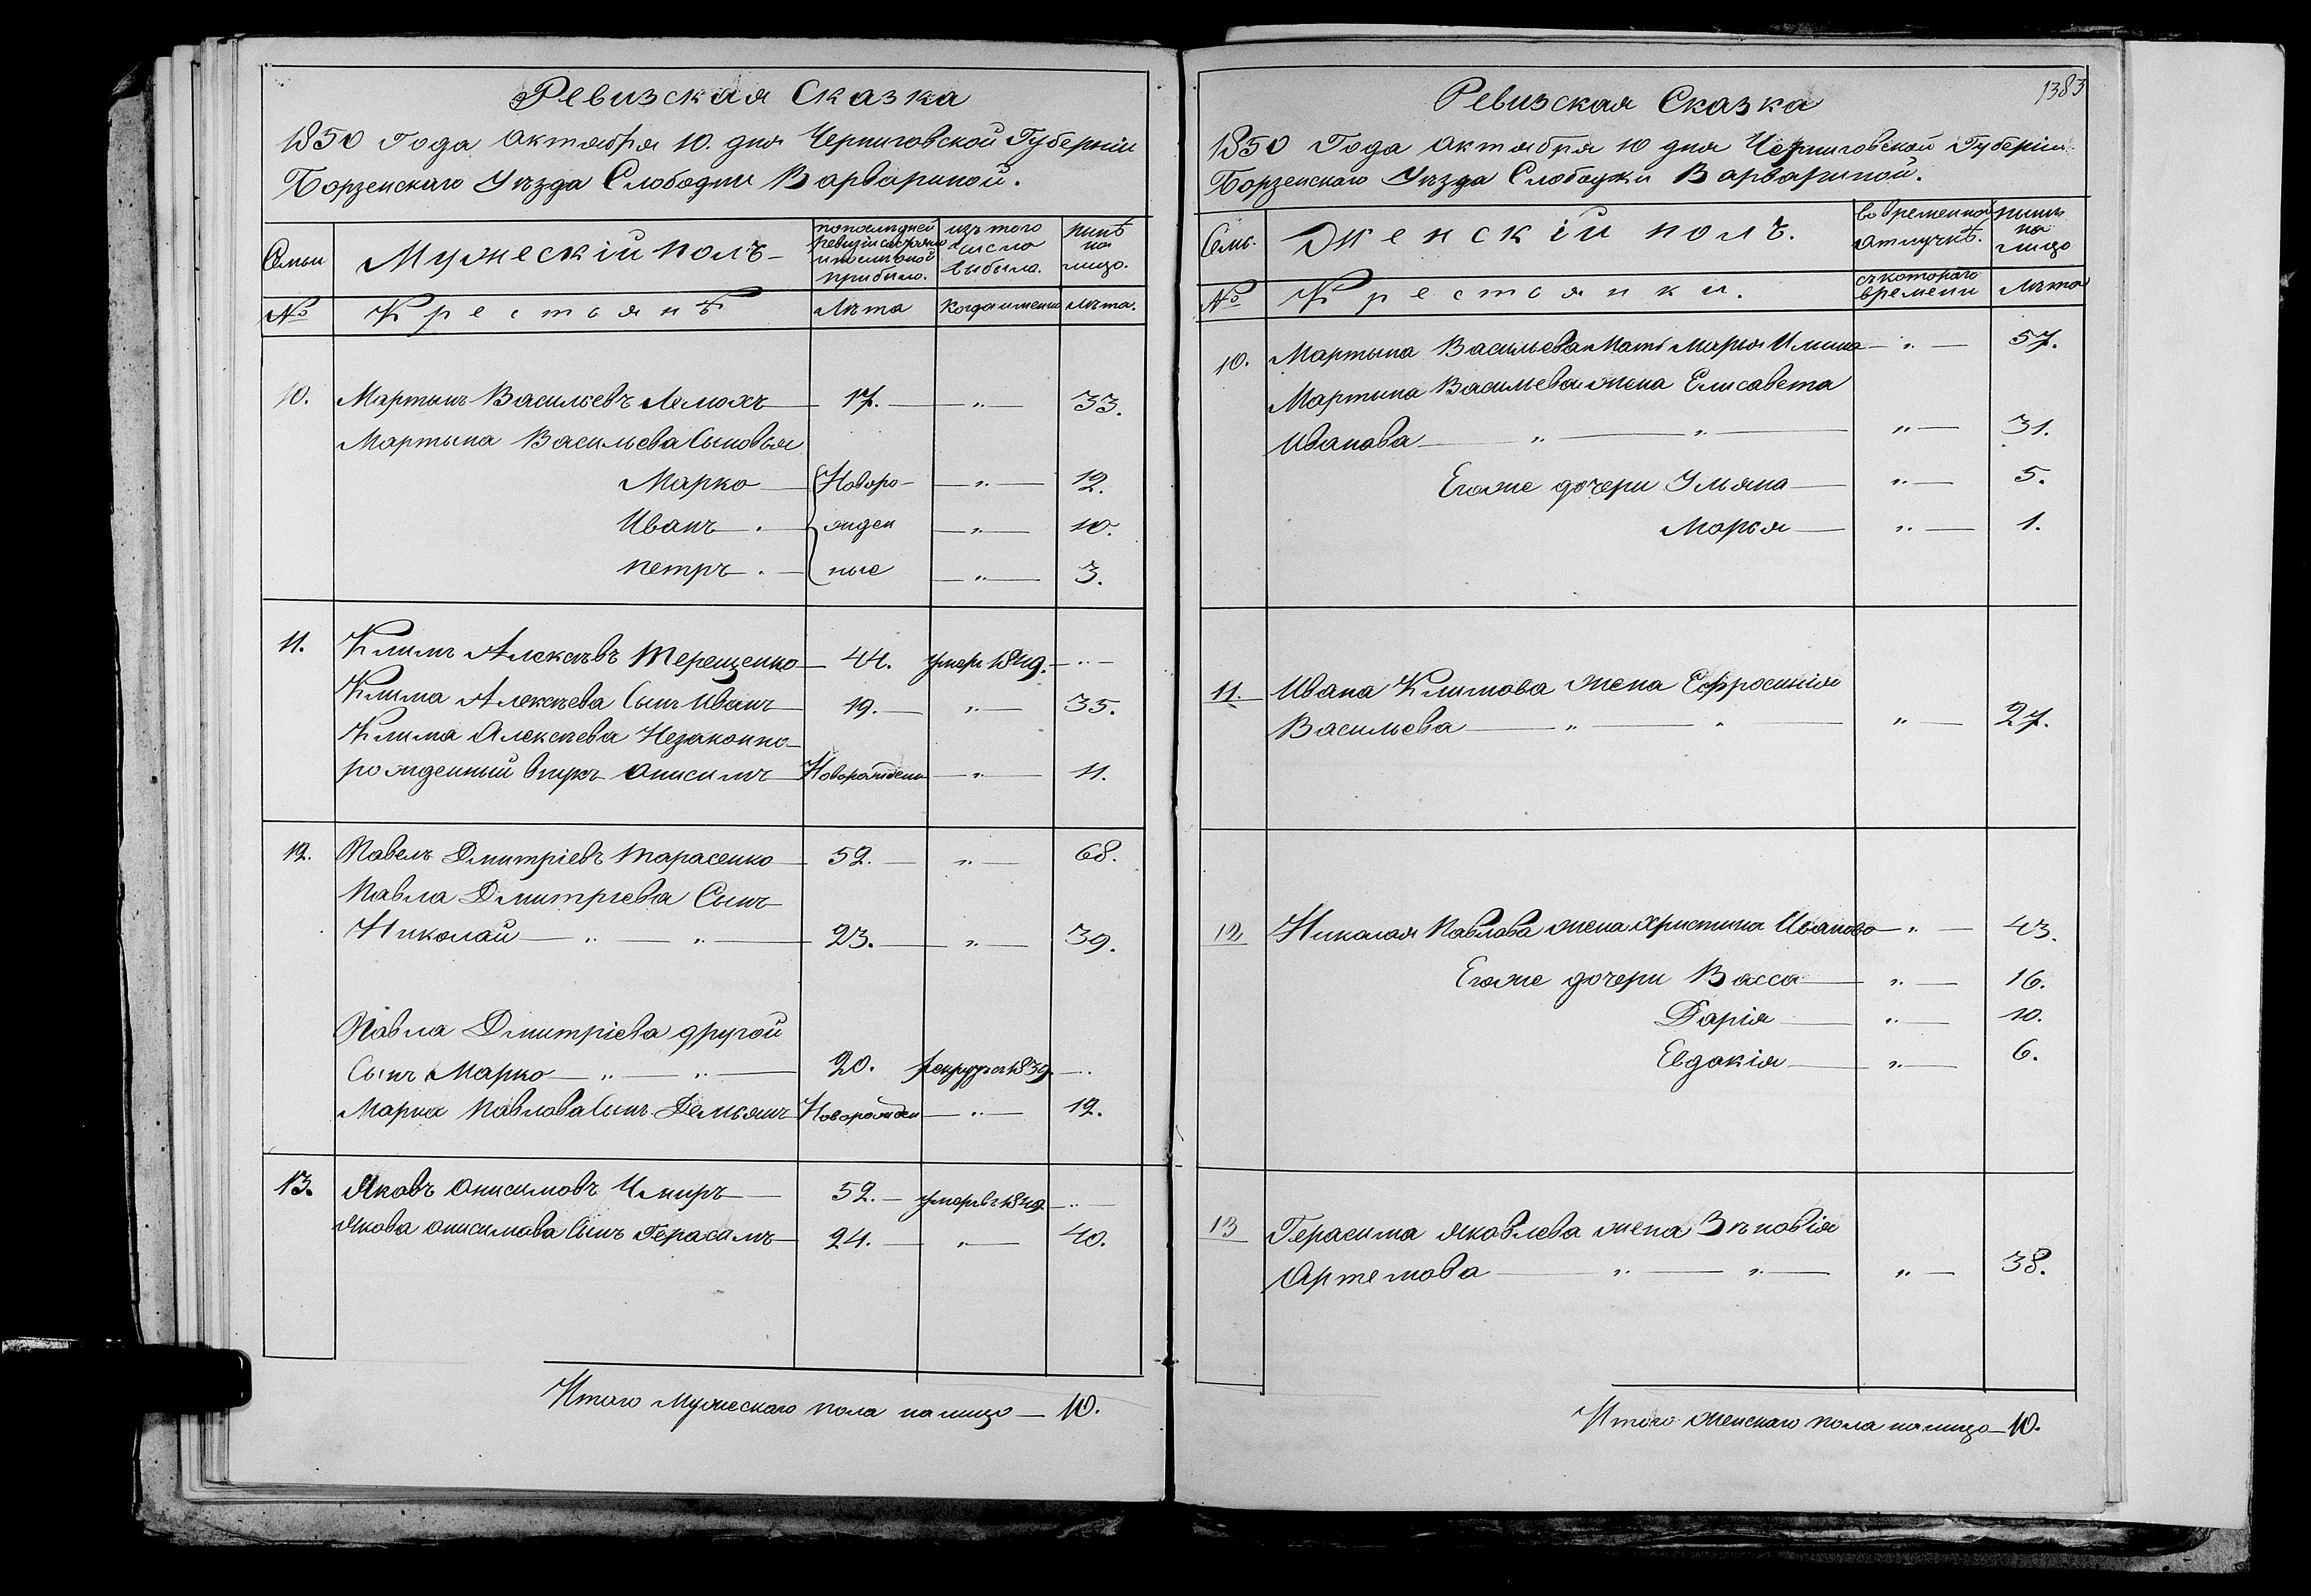 Ревизская Сказка
1850 Года Октября 10. дня Черниговской Губерніи
Борзенскаго Уѣзда Слободки Варвариной.
Семьи
Мужескій полъ
по последней ревизіи состояло и после оной прибыло.
изъ того числа выбыло.
нынѣ на лицо.
№
Крестьянѣ
Лѣта
Когда именно
Лѣта.
10. Мартынъ Васильевъ Лемохъ — 17. — „ — 33.
Мартына Васильева Сыновья
Марко — Новоро- — „ — 12.
Иванъ . — жден — „ — 10.
Петръ . — ные — „ — 3.
11. Климъ Алексѣевъ Терещенко — 44. умеръ 1849. — „ —
Клима Алексѣева Сынъ Иванъ — 19. — „ — 35.
Клима Алексѣева Незаконно-
рожденный внукъ Онисимъ — Новорожденъ — „ — 11.
12. Павелъ Дмитріевъ Тарасенко — 52. — „ — 68.
Павла Дмитріева Сынъ
Николай — „ — „ — 23. — „ — 39.
Павла Дмитріева другой
Сынъ Марко — „ — „ — 20. рекрутъ 1839. — „
Марка Павлова Сынъ Демьянъ — Новорожден — „ — 12.
13. Яковъ Онисимовъ — 52. — умеръ въ 1849 — „ —
Якова Онисимова Сынъ Герасимъ — 24. — „ — 40.
Итого Мужескаго пола на лицо — 10.
1383
Ревизская Сказка
1850 Года Октября 10 дня Черниговской Губеріи
Борзенскаго Уѣзда Слободки Варвариной.
Семь.
Женскій полъ.
во временной отлучкѣ.
нынѣ на лицо
№
Крестьянки.
съ котораго времени
Лѣта
10. Мартына Васильева Мать Марья Ильина — „ — 57.
Мартына Васильева жена Елисавета
Иванова — „ — „ — „ — 31.
Егоже дочери Ульяна — „ — 5.
Марья — „ — 1.
11. Ивана Климова жена Ефросинія
Васильева — „ — „ — „ — 27.
12 Николая Павлова жена Христина Иванова — „ — 43.
Егоже дочери Васса — „ — 16.
Дарія — „ — 10.
Евдокія — „ — 6.
13 Герасима Яковлева жена Зѣновія
Артемова — „ — „ — „ — 38.
Итого женскаго пола на лицо — 10.